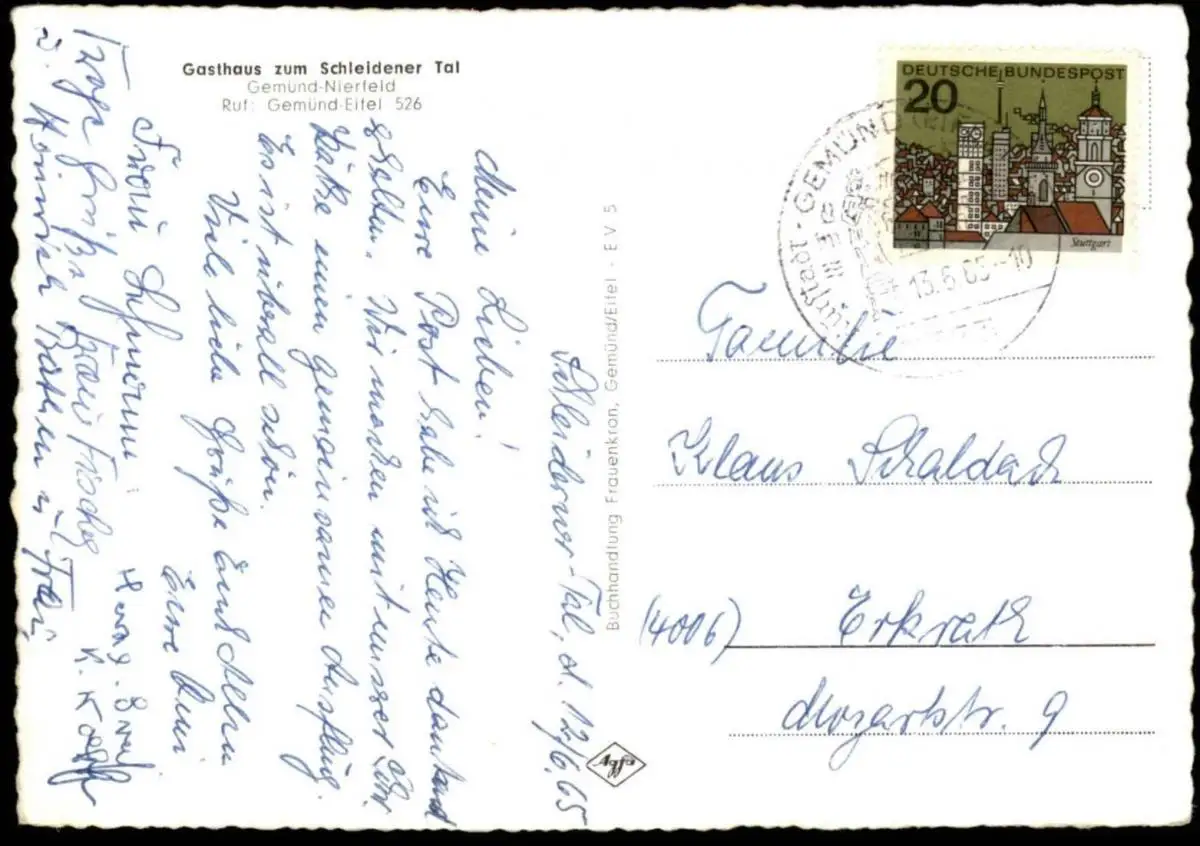 Gasthaus zum Schleidener Tal
Gemünd-Nierfeld
Ruf: Gemünd-Eifel 526
Schleidener-Tal, d. 12/6.65
Meine Lieben!
Eure Post habe ich Heute dankend
erhalten. Wir machen mit unserer
einen gemeinsamen Ausflug.
Es ist überall schön.
Viele liebe Grüße Euch Allen
Eure
Frau
Grüße Frau Fischer
u. Heinrich u. Frau
Buchhandlung Frauenkron, Gemünd/Eifel - E V 5
Agfa
DEUTSCHE BUNDESPOST
20
Stuttgart
GEMÜND (EIFEL)
13.6.65-10
Familie
Klaus Schaldach
(4006) Erkrath
Mozartstr. 9